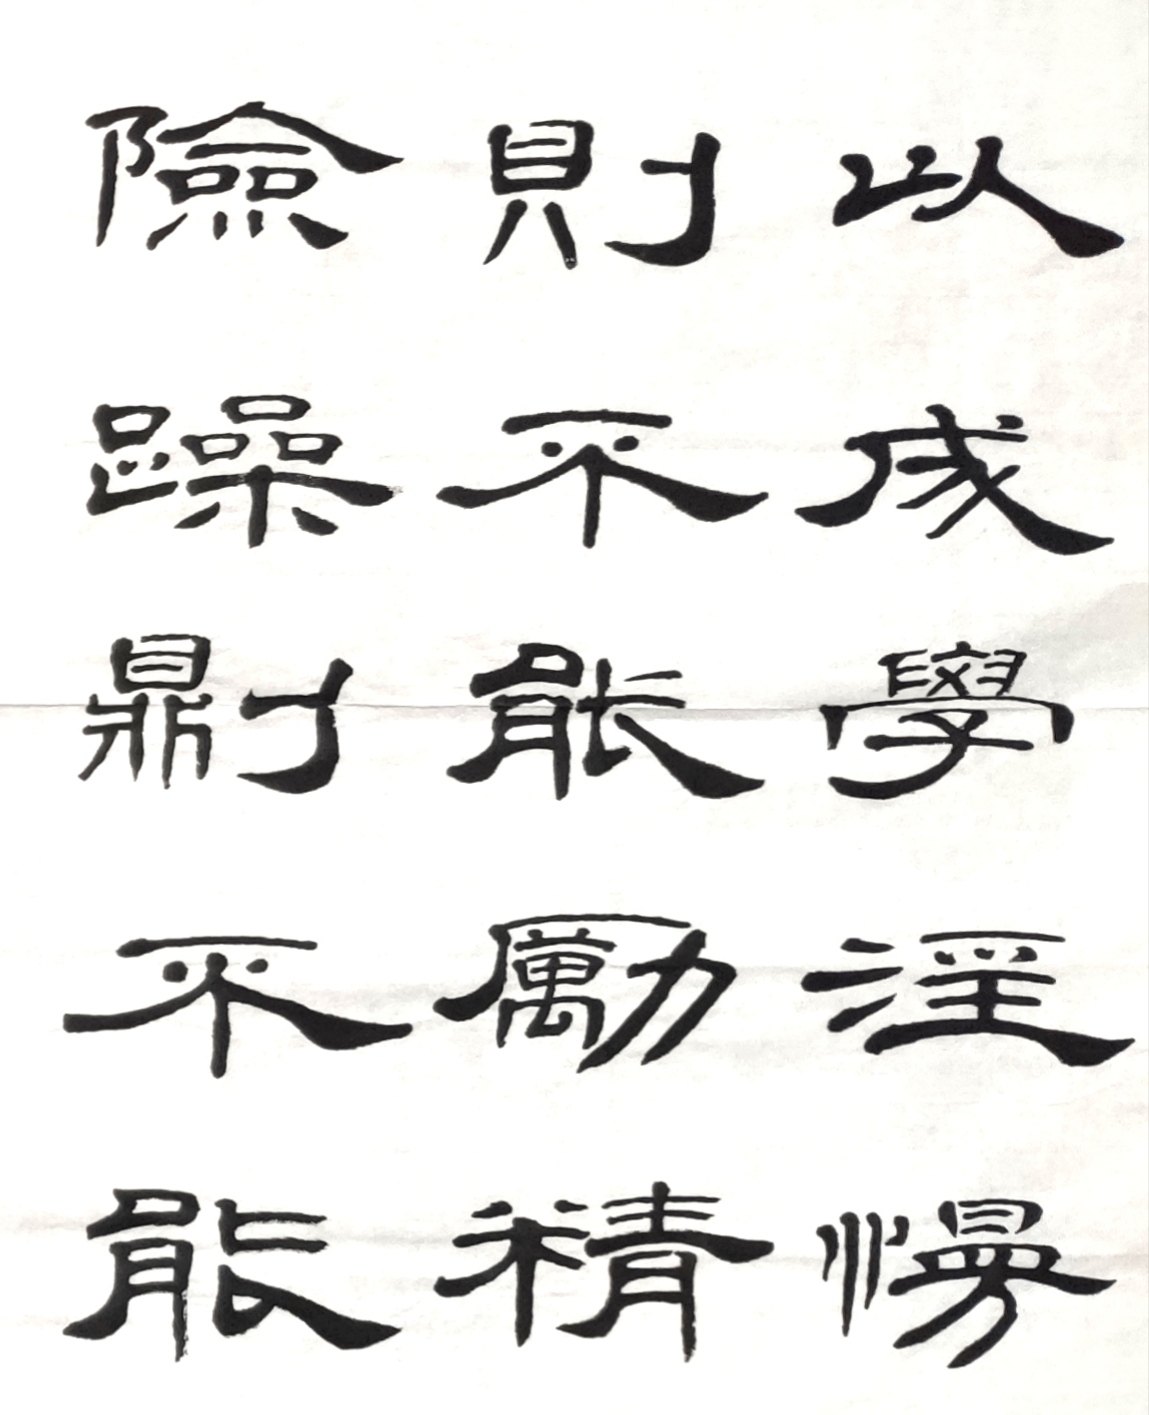 以成學淫慢
則不能勵精
險躁則不能